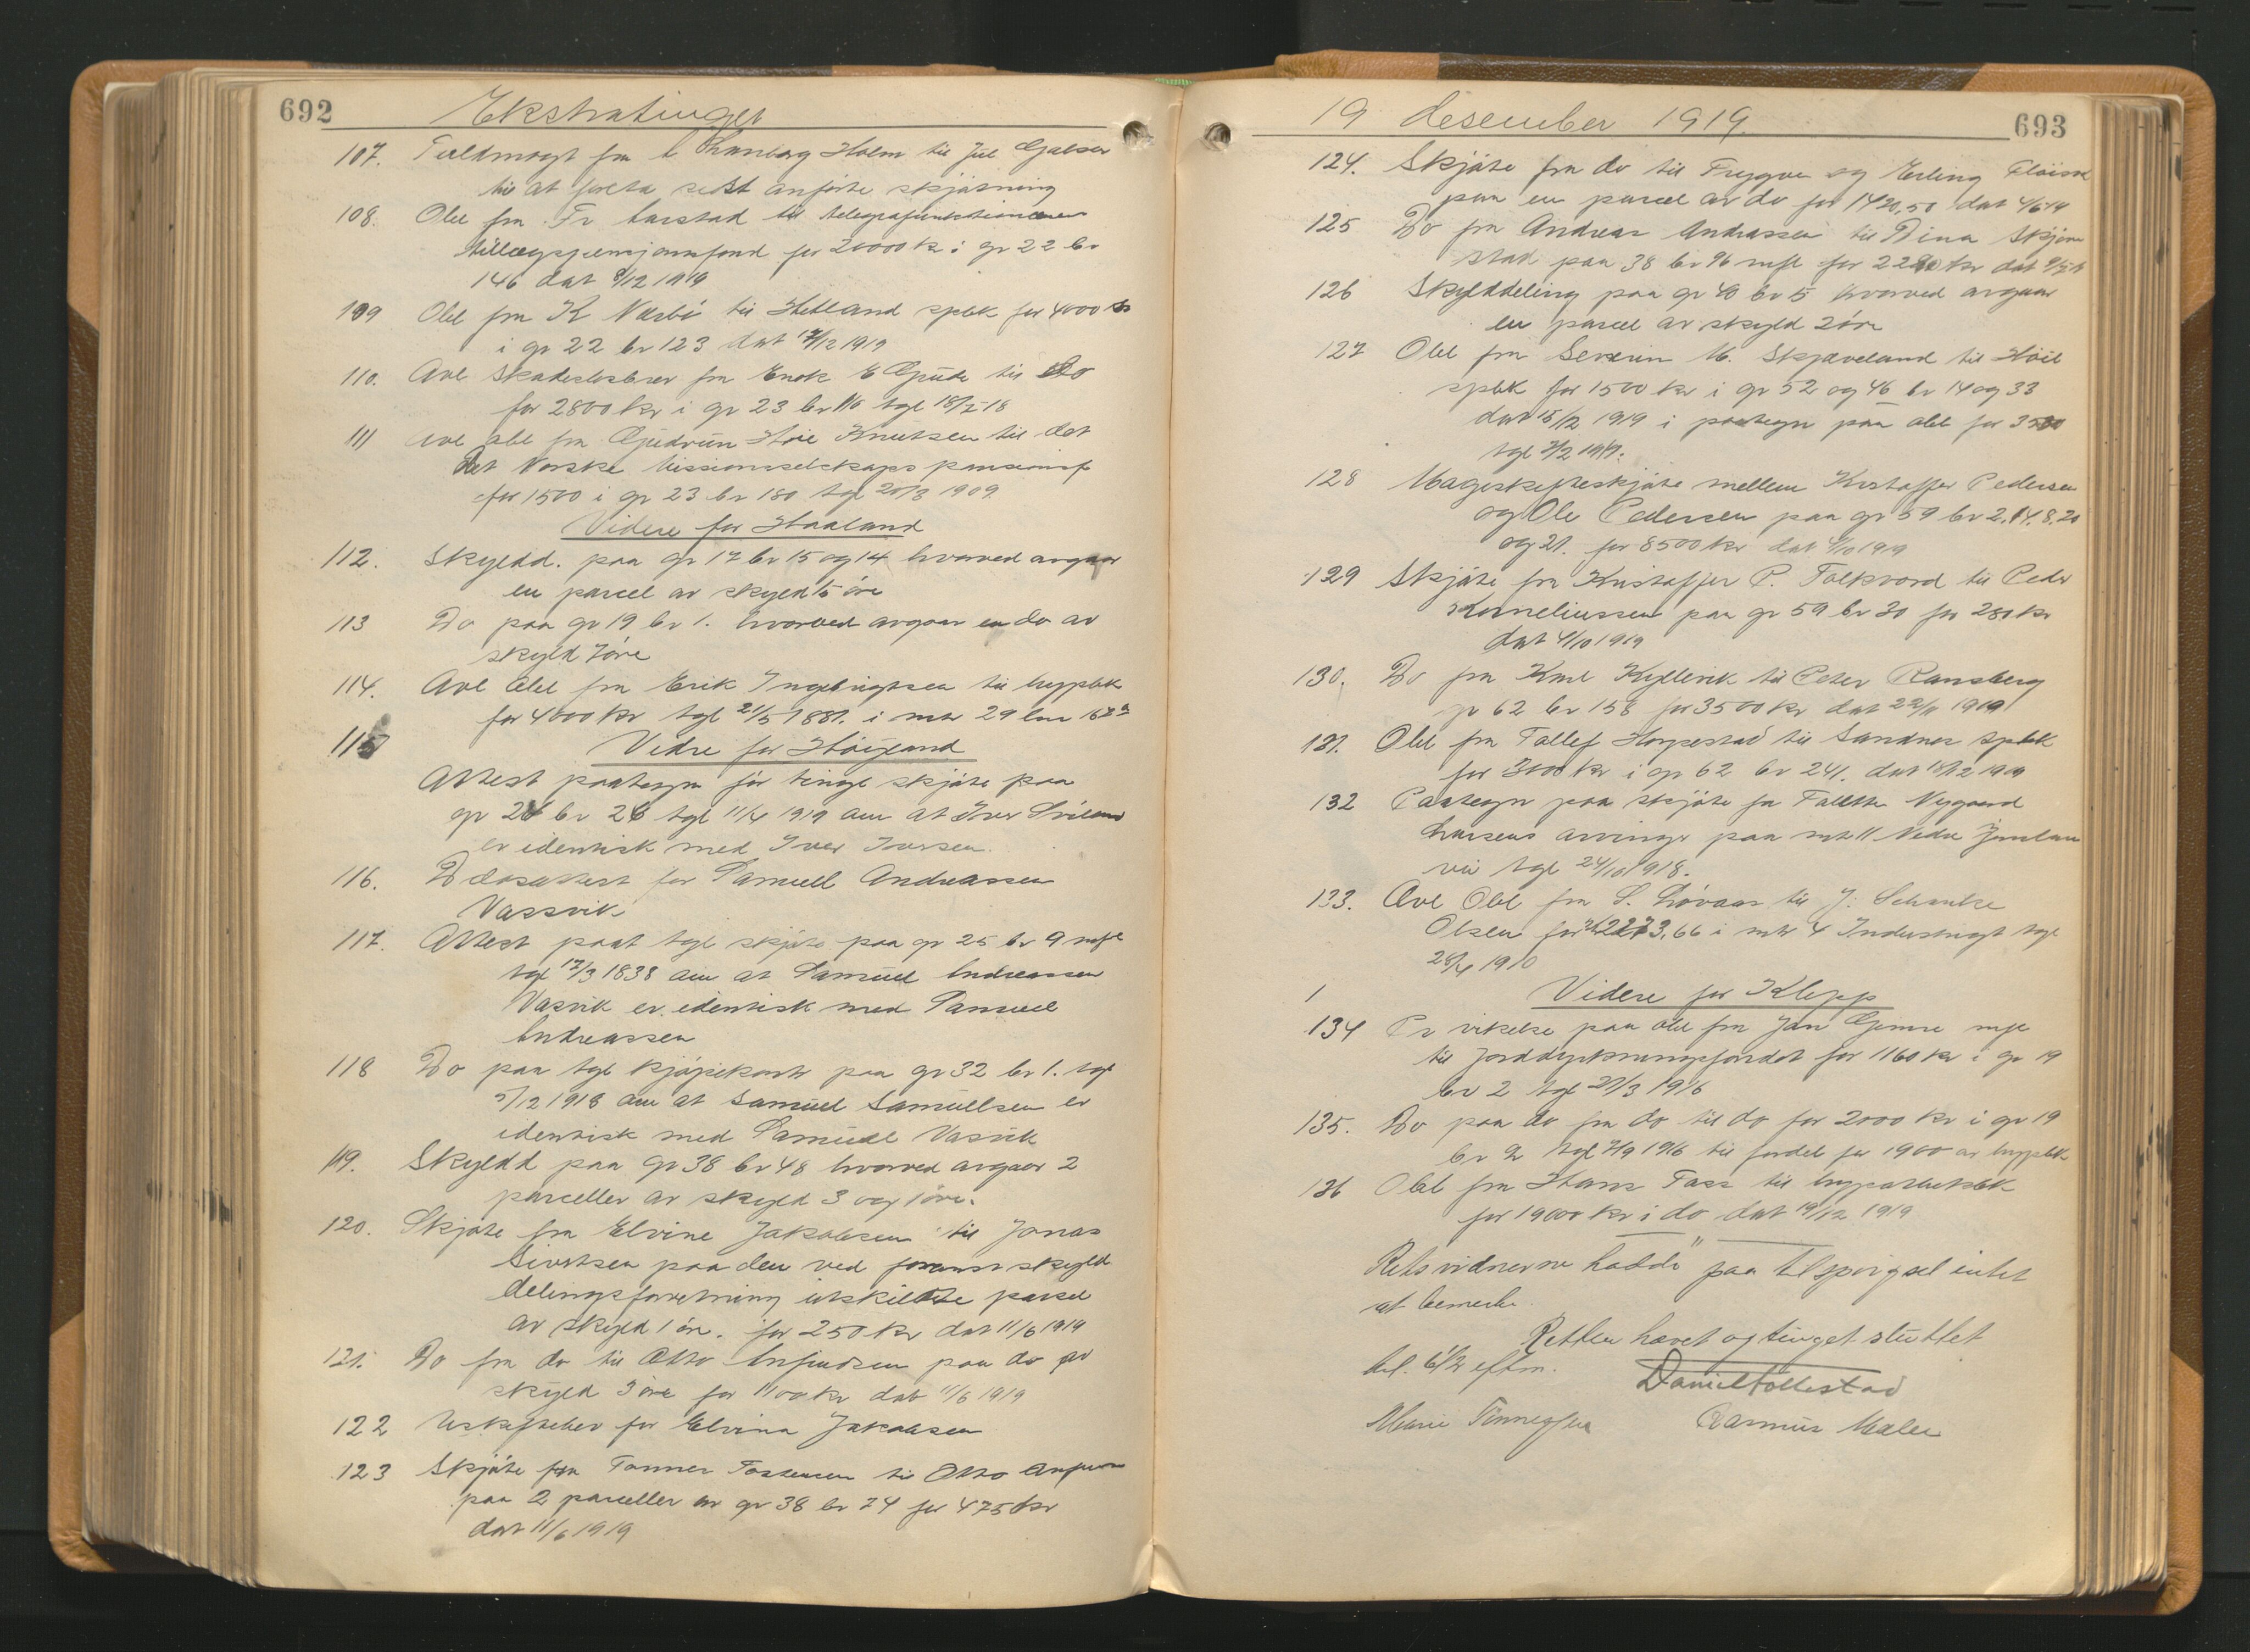 692
Ekstratinget
107. Fuldmagt fra Holm til Jul Gjelsen
til at foreta sidst anførte skjøtning
108. Obl fra Fr Barstad til telegrafunktionærenes
tillægspensjonsfond for 20000 kr i gr 22 br
146 dat 8/12 1919
109 Obl fra K Nærbö til Hetland spbk for 4000 kr
i gr 22 br 123 dat 17/12 1919
110. Avl Skadeslosbrev fra Enok E Gjude til Do
for 2800 kr i gr 23 br 116 tgl 18/5-18
111 Avl obl fra Gudrun Höie Knutsen til det
Det Norske Missionsselskaps pansionsf
for 1500 i gr 23 br 180 tgl 20/3 1909.
Videre for Haaland
112. Skyldd. paa gr 17 br 15 og 14 hvorved avgaar
en parcel av skyld 5 öre
113 Do paa gr 19 br 1. hvorved avgaar en do av
skyld 7 öre
114. Avl Obl fra Erik Ingebrigtsen til hypbk
for 4000 kr tgl 21/5 1881. i mtr 29 lnr 162a
115 Vidre for Höiland
Attest paategn før tingl skjöte paa
gr 26 br 26 tgl 11/4 1919 om at Iver
er identisk med Iver Iversen.
116. Daabsattest for Samuel Andreassen
Vassvik
117. Attest paat tgl skjöte paa gr 25 br 9 mfl
tgl 17/3 1838 om at Samuel Andreassen
Vasvik er identisk med Samuel
Andreassen
118 Do paa tgl kjøpekontr paa gr 32 br 1. tgl
5/12 1918 om at Samuel Samuelsen er
identisk med Samuel Vasvik
119. Skyldd paa gr 38 br 48 hvorved avgaar 2
parceller av skyld 3 og 1 öre.
120. Skjöte fra Elvine Jakobsen til Jonas
Sivertsen paa den ved foranst skyld
delingsforretning utskilte parsel
av skyld 1 öre. for 250 kr dat 11/6 1919
121. Do fra do til Otto Anfindsen paa do av
skyld 3 öre for 1100 kr dat 11/6 1919
122 Uskiftebev for Elvina Jakobsen
123 Skjöte fra Tönnes Tostensen til Otto
paa 2 parceller av gr 38 br 74 for 475 kr
dat 11/6 1919
19 desember 1919.
693
124. Skjöte fra do til Trygve og Erling
paa en parcel av do for 1420,50 dat 4/6-19
125 Do fra Andreas Andreassen til Dina Skjøre
stad paa 38 br 96 mfl for 2290 kr dat
126 Skylddeling paa gr 40 br 5 hvorved avgaar
en parcel av skyld 2 öre
127 Obl fra Severin M. Skjæveland til Höil
spbk for 1500 kr i gr 52 og 46 br 14 og 33
dat 15/12 1919 i paategn paa obl for 3500
tgl 7/2 1919.
128 Mageskifteskjöte mellem Kristoffer Pedersen
og Ole Pedersen paa gr 59 br 2, 14, 8, 20
og 21. for 8500 kr dat 4/10 1919
129 Skjöte fra Kristoffer P. Folkvord til Peder
Korneliussen paa gr 59 br 30 for 280 kr
dat 4/10 1919
130. Do fra Karl Kyllevik til Peter Ramsberg
gr 62 br 158 for 3500 kr dat 22/11 1919
131. Obl fra Tollef Horpestad til Sandnes spbk
for 3000 kr i gr 62 br 241. dat 18/12 1919
132 Paategn paa skjöte fra Nygaard
Larsens arvinger paa mt 11 Nedre
vei tgl 24/10 1918.
133. Avl Obl fra S. Lövaas til J. Schanke
Olsen for 2273,66 i mtr 4 Industrigt tgl
28/4 1910
1 Videre for Klepp
134 Pr vikelse paa obl fra Jan Gjemre mfl
til Jorddyrkningsfondet for 1160 kr i gr 19
br 2 tgl 27/3 1916
135. Do paa do fra do til do for 2000 kr i gr 19
br 2 tgl 7/9 1916 til fordel for 1900 av hypbk
136 Obl fra Hans Tass til hypotekbk
for 19000 kr i do dat 19/12 1919
Retsvidnerne hadde paa tilspörgsel intet
at bemerke.
Retten hævet og tinget sluttet
kl. 6 1/2 eftm.
Daniel Follestad
Marie Finnesen
Rasmus Mæle